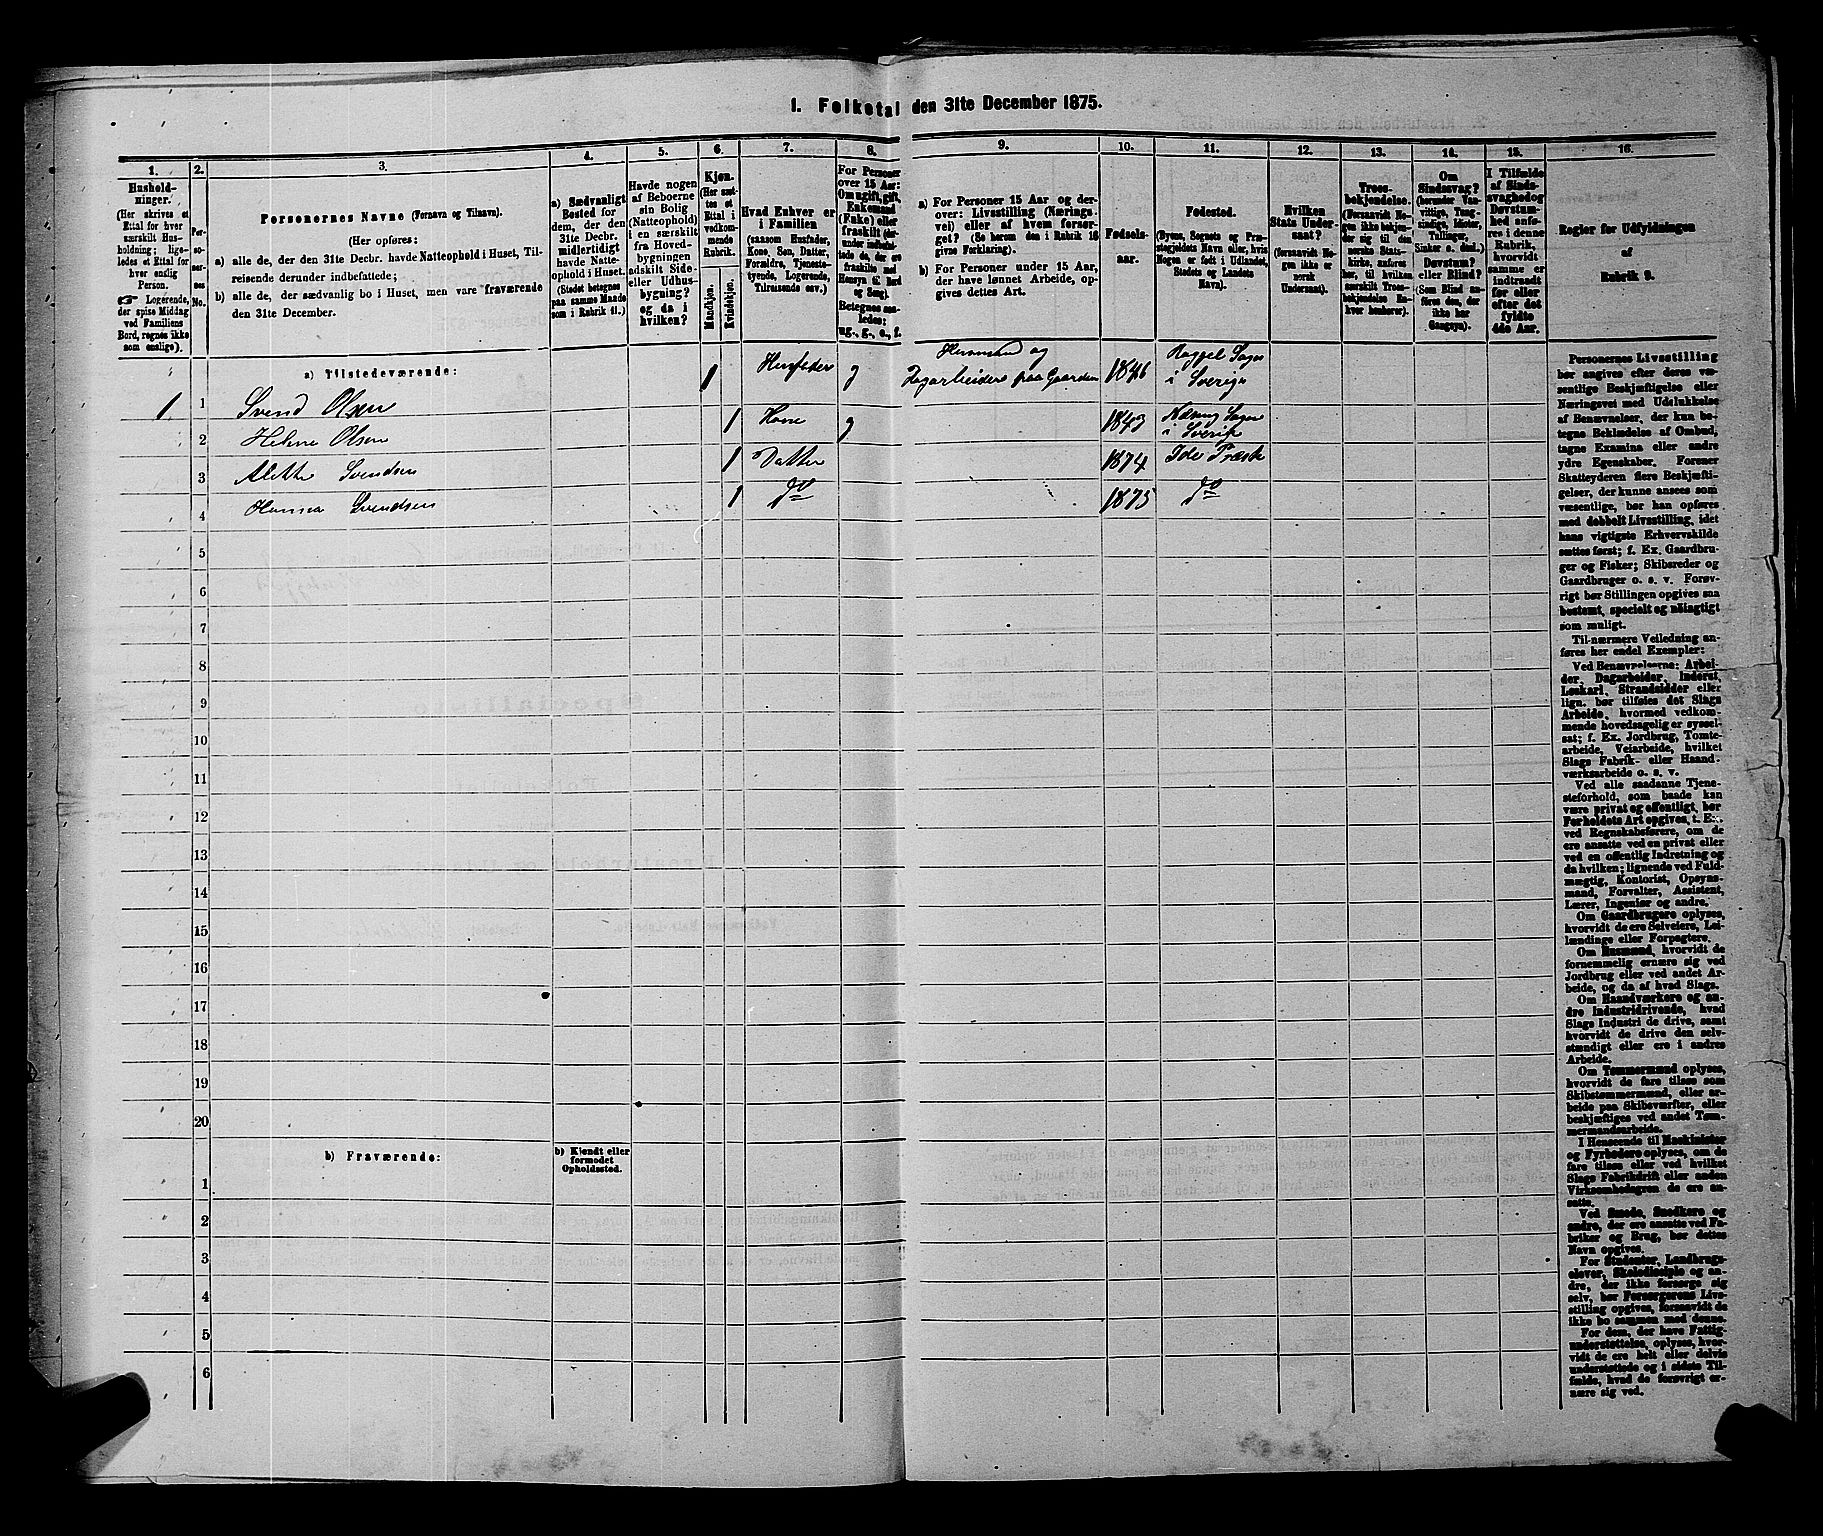 1. Folketal den 31te December 1875.
1. 2. 3. 4. 5. 6. 7. 8. 9. 10. 11. 12. 13. 14. 15. 16.
Hushold-
ninger.
(Her skrives et
Ettal for hver
særskilt Hus-
holdning; lige-
ledes et Ettal for
hver enslig
Person.
☞ Logerende,
der spise Middag
ved Familiens
Bord, regnes ikke
som enslige).
Per-
so-
ner-
nes
No.
Personernes Navne (Fornavn og Tilnavn).
(Her opføres:
a) alle de, der den 31te Decbr. havde Natteophold i Huset, Til-
reisende derunder indbefattede;
b) alle de, der sædvanlig bo i Huset, men vare fraværende
den 31te December.
a) Sædvanligt
Bosted for
dem, der den
31te Decbr.
midlertidigt
havde Natte-
ophold i Huset.
(Stedet betegnes
paa samme Maade
som i Rubrik 11.)
Havde nogen
af Beboerne
sin Bolig
(Natteophold)
i en særskilt
fra Hoved-
bygningen
adskilt Side-
eller Udhus-
bygning?
og da i
hvilken?
Kjøn.
(Her sæt-
tes et
Ettal i
vedkom-
mende
Rubrik.
Mandkjøn.
Kvindekjøn.
Hvad Enhver er
i Familien
(saasom Husfader,
Kone, Søn, Datter,
Forældre, Tjeneste-
tyende, Logerende,
Tilreisende osv.)
For Personer
over 15 Aar:
Om ugift, gift,
Enkemand
(Enke) eller
fraskilt
Betegnes saa-
ledes:
ug., g., e., f.
a) For Personer 15 Aar og der-
over: Livsstilling (Nærings-
vei) eller af hvem forsør-
get? (Se herom den i Rubrik 16
givne Forklaring).
b) For Personer under 15 Aar,
der have lønnet Arbeide, op-
gives dettes Art.
Fødsels-
aar.
Fødested.
(Byens, Sognets og Præ-
stegjeldets Navn eller, hvis
Nogen er født i Udlandet,
Stedets og Landets
Navn).
Hvilken
Stats Under-
saat?
(forsaavidt No-
gen ikke er
norsk
Undersaat).
Troes-
bekjendelse.
(forsaavidt No-
gen ikke bekjen-
der sig til den
norske Stats-
kirke, anføres
her, til hvilken
særskilt Troes-
bekjendelse En-
hver henhører).
Om
Sindssvag?
(herunder Van-
vittige, Tung-
sindige, Idioter,
Tullinger,
Sinker o. desl.)
Døvstum?
eller Blind?
(Som Blind an-
føres den, der
ikke har
Gangsyn).
I Tilfælde
af Sinds-
svaghed og
Døvstum-
hed anfø-
res i denne
Rubrik,
hvorvidt
samme er
indtraadt
før eller
efter det
fyldte
4de Aar.
Regler for Udfyldningen
af
Rubrik 9.
a) Tilstedeværende:
1 1 Svend Olsen 1 Husfader g Husmand og Dagarbeider paa Gaarden 1846 i Sverige
2 Helene Olsen 1 Kone g 1843 i Sverig
3 Svendsen 1 Datter 1874 Ide Præstg
4 Hanna Svendsen 1 do 1875 do
5
6
7
8
9
10
11
12
13
14
15
16
17
18
19
20
b) Fraværende:
b) Kjendt eller
formodet
Opholdssted.
1
2
3
4
5
6
Personernes Livsstilling
bør angives efter deres væ-
sentlige Beskjæftigelse eller
Næringsvei med Udelukkelse
af Benævnelser, der kun be-
tegne Beklædelse af Ombud,
tagne Examina eller andre
ydre Egenskaber. Forener
Skatteyderen flere Beskjæfti-
gelser, der kunne ansees som
væsentlige, bør han opføres
med dobbelt Livsstilling, idet
hans vigtigste Erhvervskilde
sættes først; f. Ex. Gaardbru-
ger og Fisker; Skibsreder og
Gaardbruger o. s. v. Forøv-
rigt bør Stillingen opgives saa
bestemt, specielt og nøiagtigt
som muligt.
Til nærmere Veiledning an-
føres her endel Exempler:
Ved Benævnelserne: Arbei-
der, Dagarbeider, Inderst,
Løskarl, Strandsidder eller
lign. bør tilføies det Slags
Arbeide, hvormed vedkom-
mende hovedsagelig er syssel-
sat; f. Ex. Jordbrug, Tomte-
arbeide, Veiarbeide, hvilket
Slags Fabrik- eller Haand-
værksarbeide o. s. v.
Ved alle saadanne Tjene-
steforhold, som baade kan
være privat og offentligt, bør
Forholdets Art opgives, t. Ex.
ved Regnskabsførere, om de
ere ansatte ved en privat eller
ved en offentlig Indretning og
da hvilken; lignende ved Fuld-
mægtig, Kontorist, Opsyns-
mand, Forvalter, Assistent,
Lærer, Ingeniør og andre.
Om Gaardbrugere oplyses,
hvorvidt de ere Selveiere, Lei-
lændinge eller Forpagtere.
Om Husmænd, hvorvidt de
fornemmelig ernære sig ved
Jordbrug eller ved andet Ar-
beide, og da af hvad Slags.
Om Haandværkere og an-
dre Industridrivende, hvad
Slags Industri de drive, samt
hvorvidt de drive den selv-
stændigt eller ere i andres
Arbeide.
Om Tømmermænd oplyses,
hvorvidt de fare tilsøs som
Skibstømmermænd, eller ar-
beide paa Skibsværfter, eller
beskjæftiges ved andet Tøm-
mermandsarbeide.
I Henseende til Maskinister
og Fyrbødere oplyses, om de
fare tilsøs eller ved hvilket
Slags Fabrikdrift eller anden
Virksomhedsgren de ere an-
satte.
Ved Smede, Snedkere og
andre, der ere ansatte ved Fa-
briker og Brug, bør dettes
Navn opgives.
For Studenter, Landbrugs-
elever, Skoledisciple og an-
dre, der ikke forsørge sig
selv, bør Forsørgerens Livs-
stilling opgives, forsaavidt de
ikke bo sammen med denne.
For dem, der have Fattig-
understøttelse, oplyses, hvor-
vidt de ere helt eller delvis
understøttede og i sidste Til-
fælde, hvad de forøvrigt er-
nære sig ved.